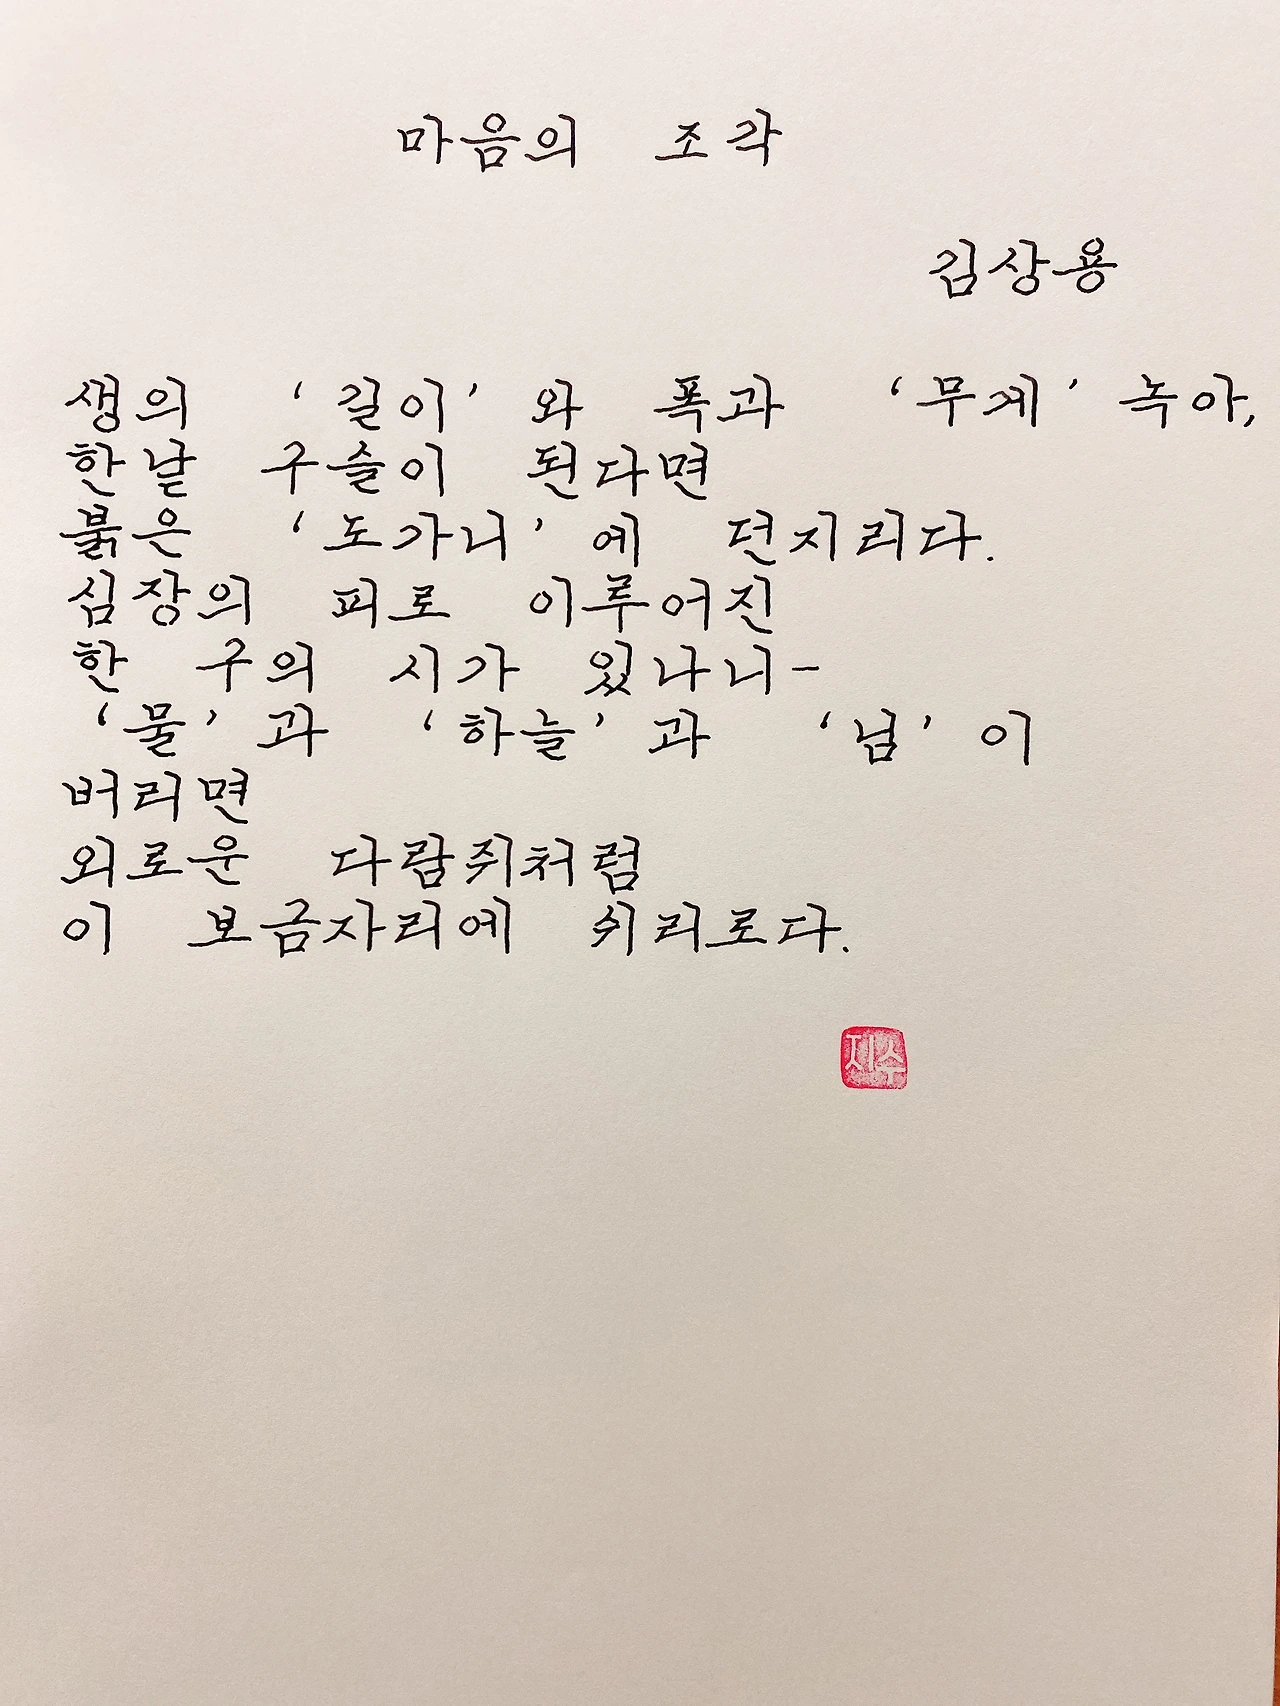 마음의 조각
김상용
생의 ‘길이’와 폭과 ‘무게’ 녹아,
한낱 구슬이 된다면
붉은 ‘도가니’에 던지리다.
심장의 피로 이루어진
한 구의 시가 있나니-
‘물’과 ‘하늘’과 ‘님’이
버리면
외로운 다람쥐처럼
이 보금자리에 쉬리로다.
지수